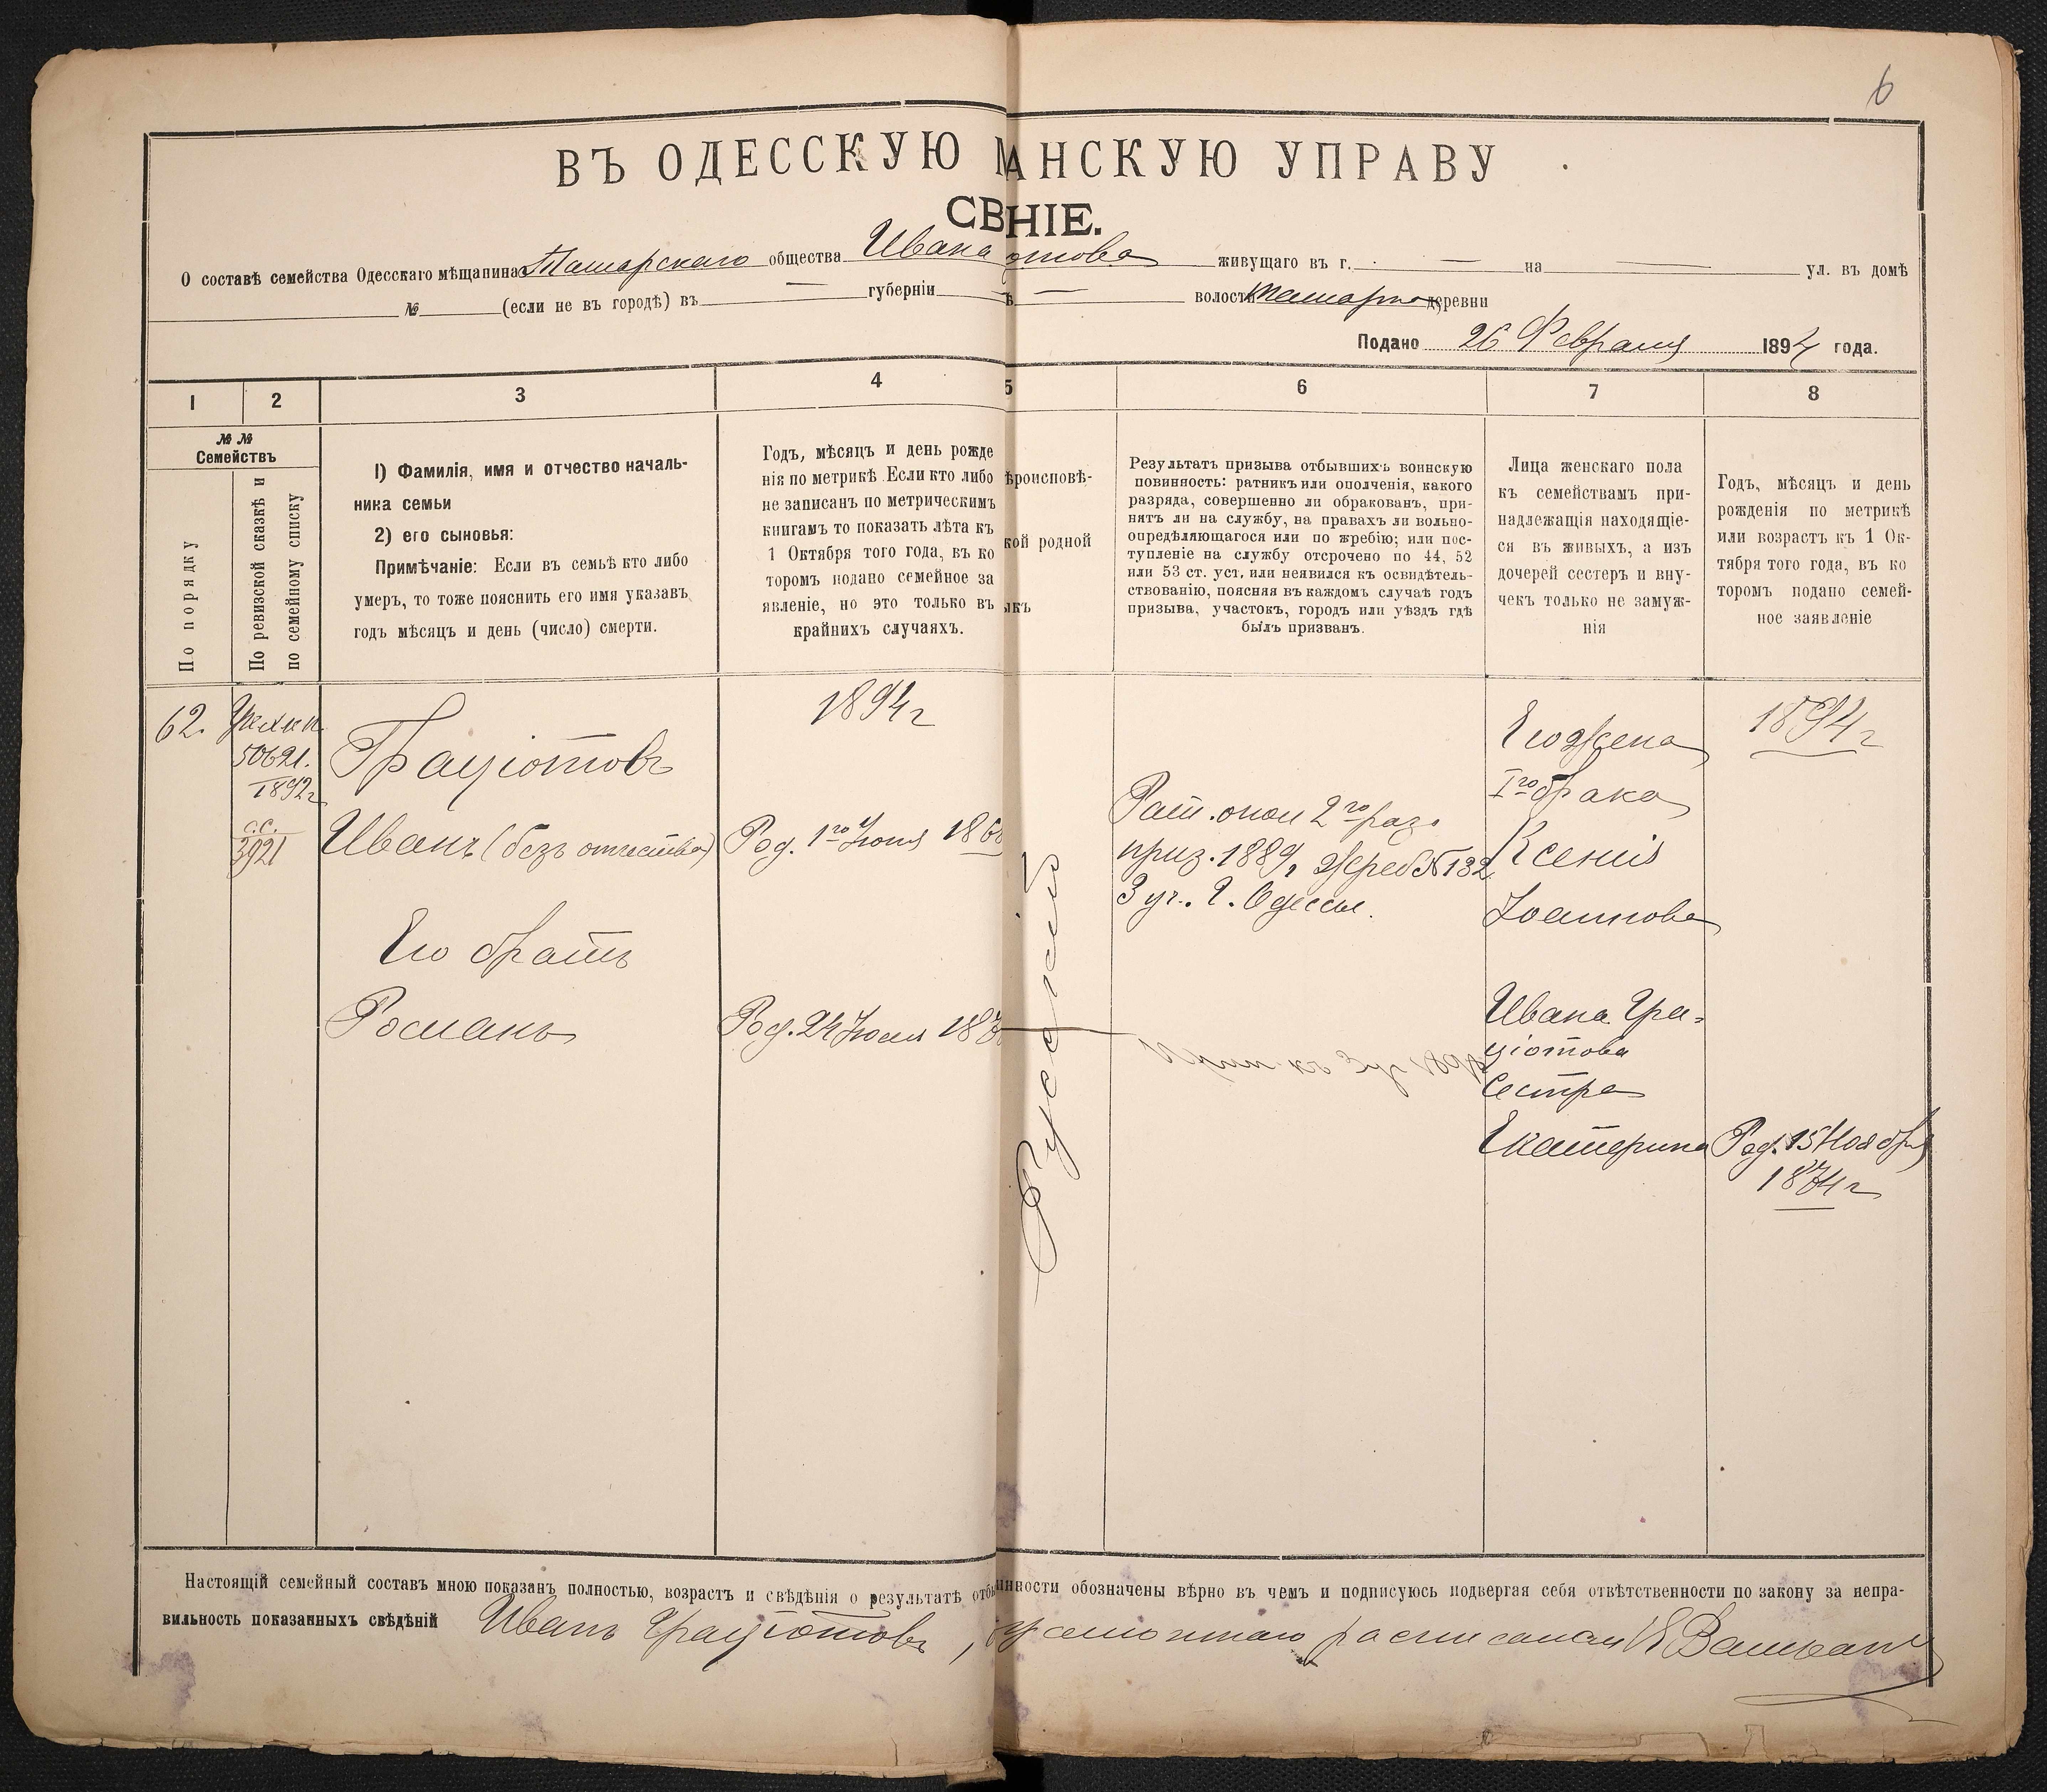 6
ВЪ ОДЕССКУЮ М АНСКУЮ УПРАВУ
СВ НІЕ.
О составѣ семейства Одесскаго мѣщанина Ташарскаго общества Ивана отова живущаго въ г. — на — ул. въ домѣ
№ (если не въ городѣ) въ — губерніи — ѣ — волости деревни
Подано 26 Февраля 1894 года.
1 2 3 4 5 6 7 8
№ № Семействъ
По порядку
По ревизской сказкѣ и по семейному списку
1) Фамилія, имя и отчество началь-
ника семьи
2) его сыновья:
Примѣчаніе: Если въ семьѣ кто либо
умеръ, то тоже пояснить его имя указавъ
годъ мѣсяцъ и день (число) смерти.
Годъ, мѣсяцъ и день рожде
нія по метрикѣ. Если кто либо
не записанъ по метрическимъ
книгамъ то показать лѣта къ
1 Октября того года, въ ко
торомъ подано семейное за
явленіе, но это только въ
крайнихъ случаяхъ.
ѣроисповѣ-
кой родной
ыкъ
Результатъ призыва отбывшихъ воинскую
повинность: ратникъ или ополченія, какого
разряда, совершенно ли обракованъ, при-
нятъ ли на службу, на правахъ ли вольно-
опредѣляющагося или по жребію; или пос-
тупленіе на службу отсрочено по 44, 52
или 53 ст. уст. или неявился къ освидѣтель-
ствованію, поясняя въ каждомъ случаѣ годъ
призыва, участокъ, городъ или уѣздъ гдѣ
былъ призванъ.
Лица женскаго пола
къ семействамъ при-
надлежащія находящіе-
ся въ живыхъ, а изъ
дочерей сестеръ и вну-
чекъ только не замуж-
нія
Годъ, мѣсяцъ и день
рожденія по метрикѣ
или возрастъ къ 1 Ок-
тября того года, въ ко
торомъ подано семей-
ное заявленіе
62.
50621.
1892г
с.с.
3921
Граціотовъ
Иванъ (безъ отчества)
Его братъ
Романъ
1894г
Род. 1го Іюня 186
Род. 24 Іюля 187
Русскій
Рат. опол 2го раз.
приз. 1889г жреб № 132
3 уч. г. Одессы.
Его жена
Iго брака
Ксенія
Іоаннова
Ивана Гра-
ціотова
Сестра
Екатерина
1894г
Род. 15 Ноября
1874г
Настоящій семейный составъ мною показанъ полностью, возрастъ и свѣдѣнія о результатѣ отбы инности обозначены вѣрно въ чемъ и подписуюсь подвергая себя отвѣтственности по закону за непра-
вильность показанныхъ свѣдѣній Иванъ Граціотовъ,